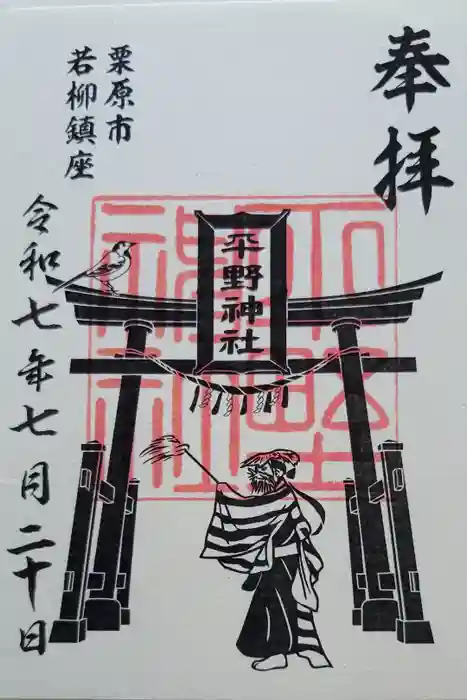 奉拝
栗原市
若柳鎮座
平野神社
平野
神社
令和七年七月二十日